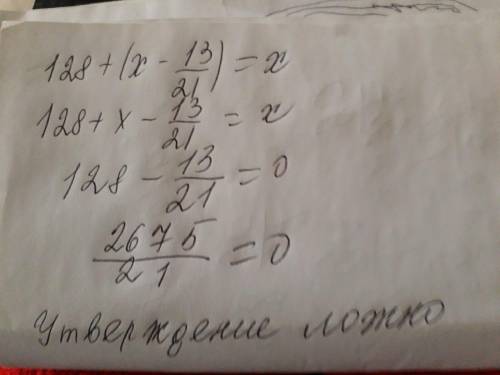 128+(x - 13/21) = x
128 + x - 13/21 = x
128 - 13/21 = 0
2675/21 = 0
Утверждение ложно